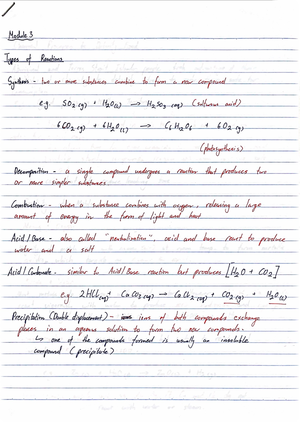 Module 3
Types of Reactions
Synthesis - two or more substances combine to form a new compound
e.g. SO2 (g) + H2O(l) → H2SO3 (aq) (sulfurous acid)
6CO2 (g) + 6H2O(l) → C6H12O6 + 6O2 (g)
(photosynthesis)
Decomposition - a single compound undergoes a reaction that produces two
or more simpler substances
Combustion - when a substance combines with oxygen, releasing a large
amount of energy in the form of light and heat
Acid/Base - also called "neutralisation", acid and base react to produce
water and a salt
Acid/Carbonate - similar to Acid/Base reaction but produces [H2O + CO2]
e.g. 2HCl(aq) + CaCO3 (aq) → CaCl2 (aq) + CO2 (g) + H2O(l)
Precipitation (Double displacement) - ions of both compounds exchange
places in an aqueous solution to form two new compounds.
↳ one of the compounds formed is usually an insoluble
compound (precipitate)